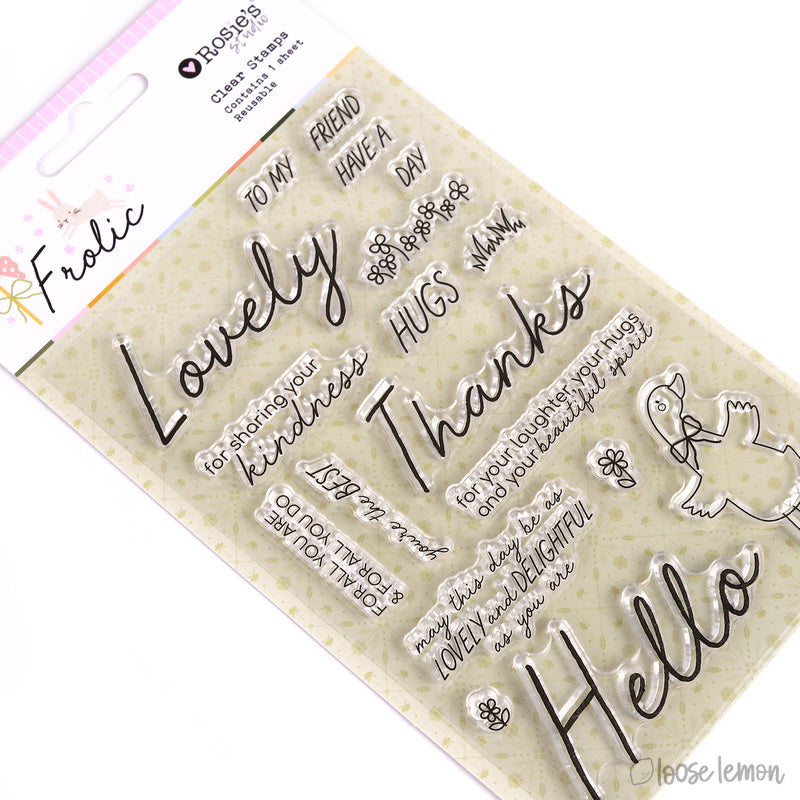 Rosie's
studio
Clear Stamps
Contains 1 sheet
Reusable
Frolic
TO MY
FRIEND
HAVE A
DAY
Lovely
HUGS
Thanks
for sharing your
kindness
for your laughter, your hugs
and your beautiful spirit
you're the BEST
FOR ALL YOU ARE
& FOR ALL YOU DO
may this day be as
LOVELY and DELIGHTFUL
as you are
Hello
loose lemon